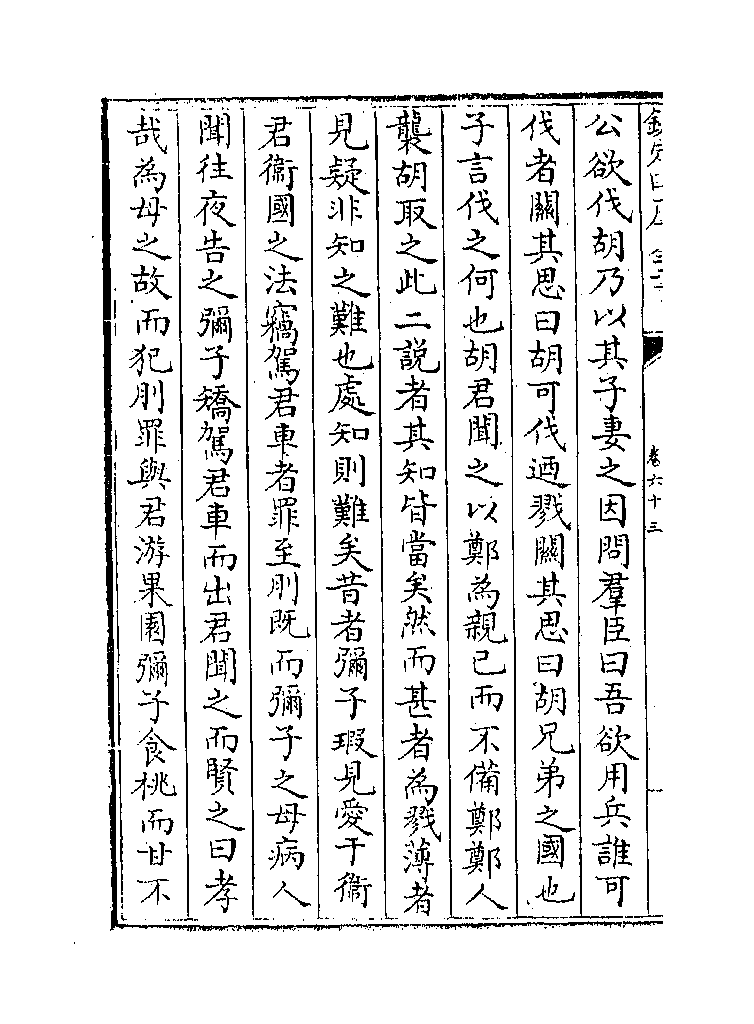 卷六十三
公欲伐胡乃以其子妻之因問羣臣曰吾欲用兵誰可
伐者關其思曰胡可伐迺戮關其思曰胡兄弟之國也
子言伐之何也胡君聞之以鄭為親已而不備鄭鄭人
襲胡取之此二説者其知皆當矣然而甚者為戮薄者
見疑非知之難也處知則難矣昔者彌子瑕見愛于衞
君衞國之法竊駕君車者罪至刖既而彌子之母病人
聞往夜告之彌子矯駕君車而出君聞之而賢之曰孝
哉為母之故而犯刖罪與君游果園彌子食桃而甘不